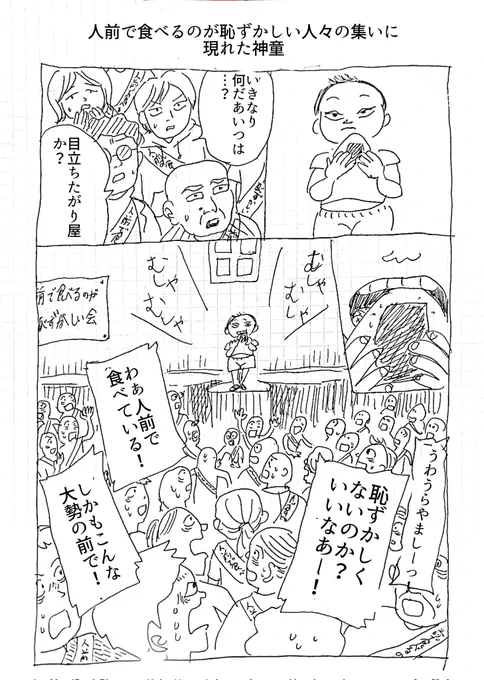 人前で食べるのが恥ずかしい人々の集いに
現れた神童
いきなり
何だあいつは
…?
目立ちたがり屋
か?
むしゃ
むしゃ
むしゃ
むしゃ
前で食べるのが
恥ずかしい会
わぁ人前で
食べている!
しかもこんな
大勢の前で!
うわうらやましーっ!
恥ずかしく
ないのか?
いいなあー!